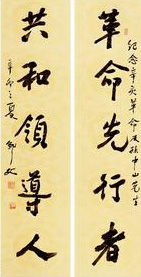 纪念辛亥革命及孫中山先生
革命先行者
共和領導人
辛卯之夏